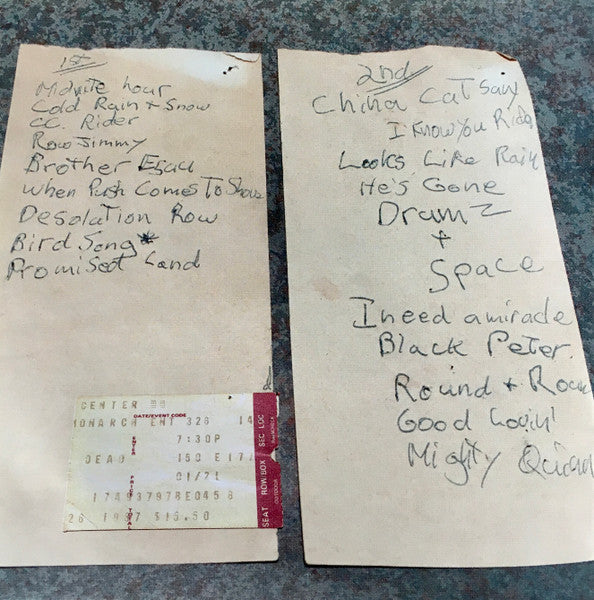 1st
Midnite hour
Cold Rain + Snow
CC. Rider
Row Jimmy
Brother Esau
When Push Comes To Shove
Desolation Row
Bird Song*
Promised Land
CENTER
DATE/EVENT CODE
MONARCH ENT 326 14
ENTER
7:30P
DEAD 150 E17
01/21
PRICE
TOTAL
174937978E0458
26 1987 $16.50
SEAT ROW/BOX SEC LOC
2nd
China Cat Sunf
I Know You Rider
Looks Like Rain
He's Gone
DrumZ
+
Space
I need a miracle
Black Peter.
Round + Roun
Good Lovin'
Mighty Quinn